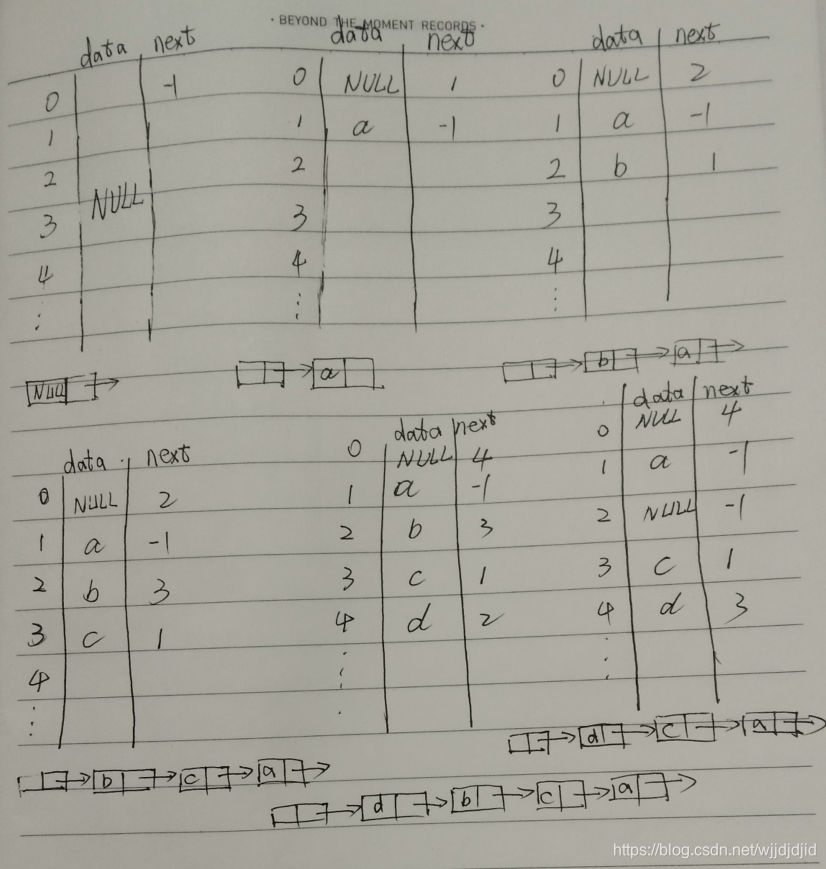 · BEYOND THE MOMENT RECORDS ·
data next
0 -1
1
2
NULL
3
4
⋮
data next
0 NULL 1
1 a -1
2
3
4
⋮
data next
0 NULL 2
1 a -1
2 b 1
3
4
⋮
NULL
a
b a
data next
0 NULL 2
1 a -1
2 b 3
3 c 1
4
⋮
data next
0 NULL 4
1 a -1
2 b 3
3 c 1
4 d 2
⋮
data next
0 NULL 4
1 a -1
2 NULL -1
3 c 1
4 d 3
⋮
d c a
b c a
d b c a
https://blog.csdn.net/wjjdjdjid